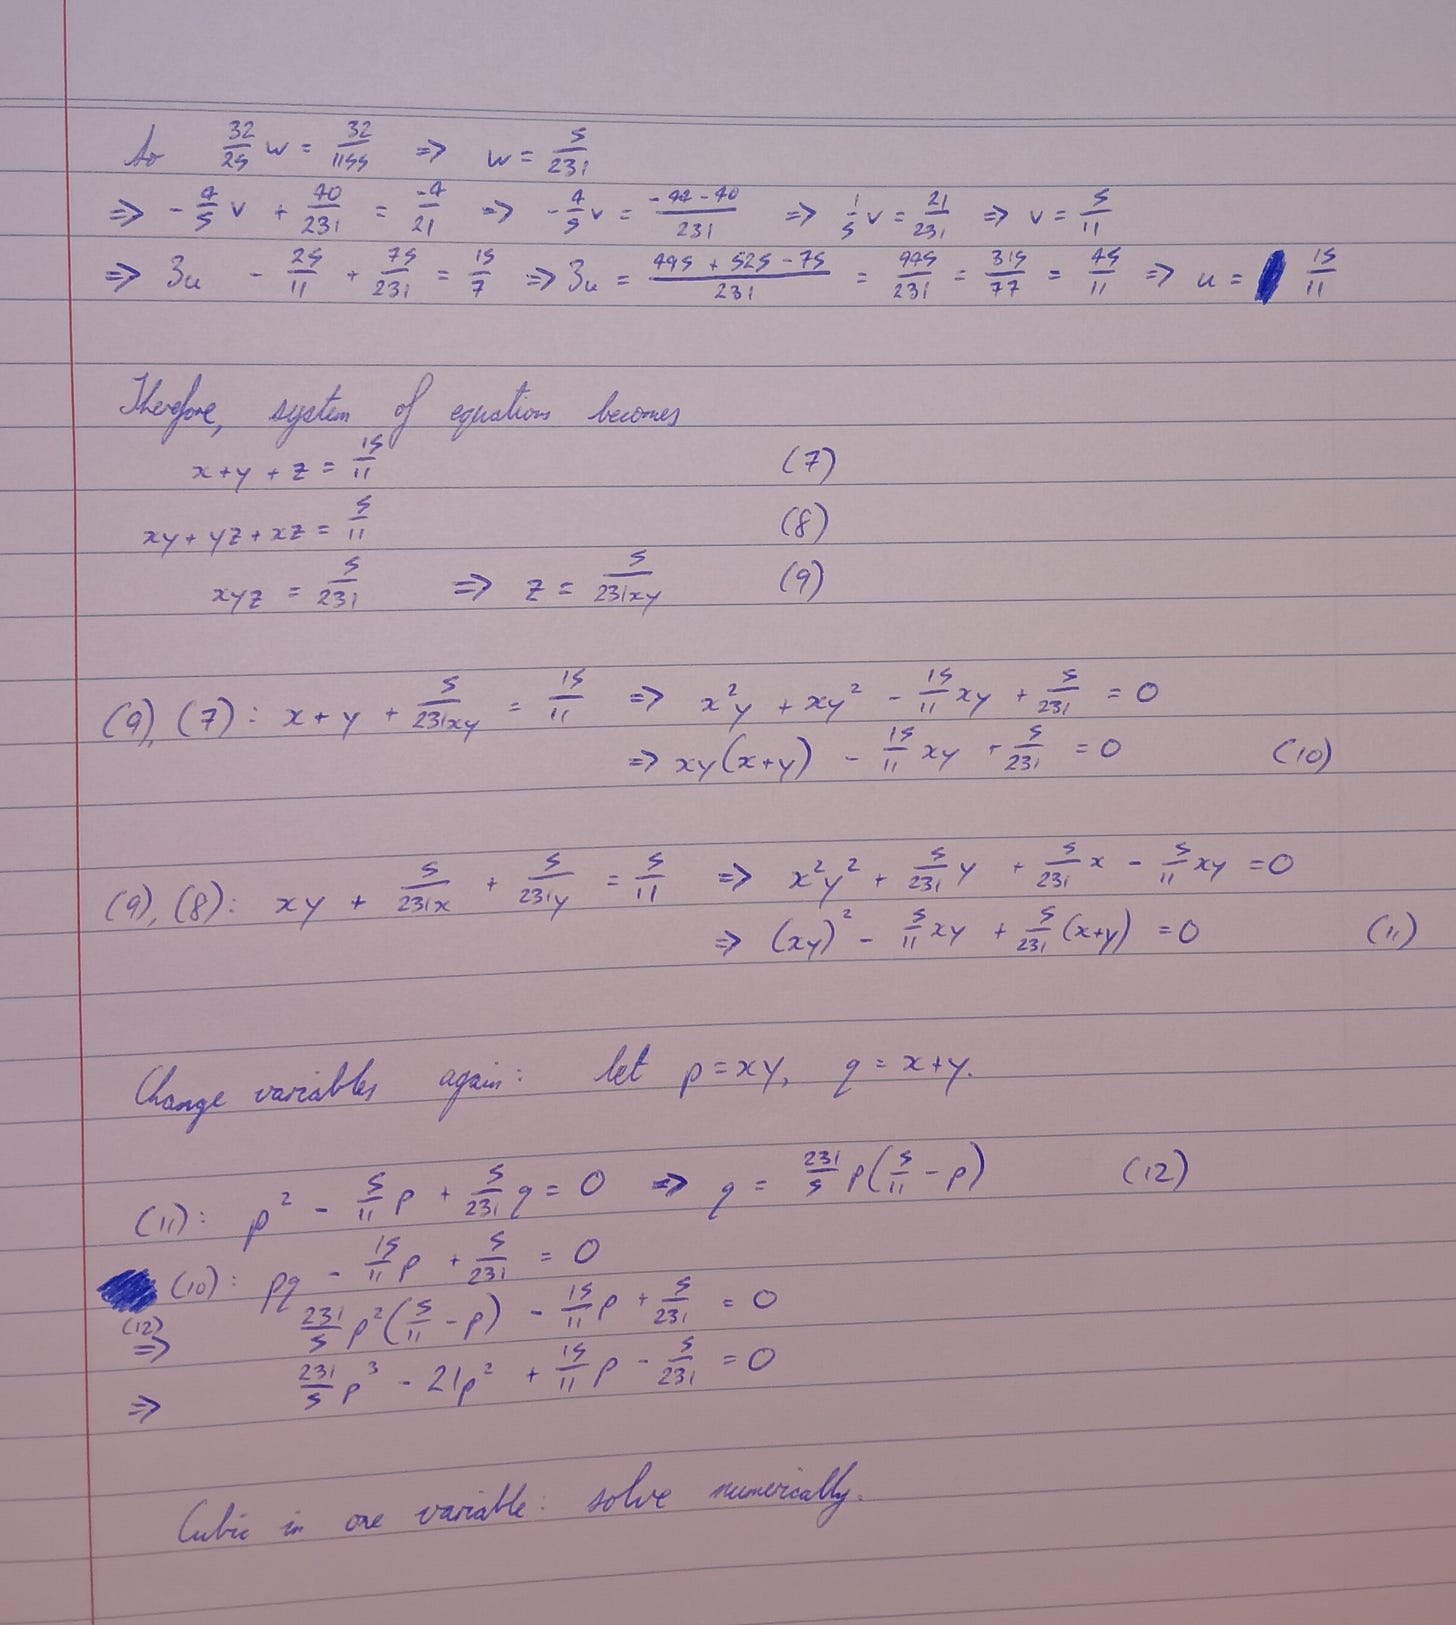 so 32/25 w = 32/1155 ⇒ w = 5/231
⇒ -4/5 v + 40/231 = -4/21 ⇒ -4/5 v = (-44-40)/231 ⇒ 1/5 v = 21/231 ⇒ v = 5/11
⇒ 3u - 25/11 + 75/231 = 15/7 ⇒ 3u = (495 + 525 - 75)/231 = 945/231 = 315/77 = 45/11 ⇒ u = 15/11
Therefore, system of equations becomes
x+y+z = 15/11 (7)
xy + yz + xz = 5/11 (8)
xyz = 5/231 ⇒ z = 5/231xy (9)
(9), (7): x + y + 5/231xy = 15/11 ⇒ x²y + xy² - 15/11 xy + 5/231 = 0
⇒ xy(x+y) - 15/11 xy + 5/231 = 0 (10)
(9), (8): xy + 5/231x + 5/231y = 5/11 ⇒ x²y² + 5/231 y + 5/231 x - 5/11 xy = 0
⇒ (xy)² - 5/11 xy + 5/231 (x+y) = 0 (11)
Change variables again: let p = xy, q = x+y.
(11): p² - 5/11 p + 5/231 q = 0 ⇒ q = 231/5 p(5/11 - p) (12)
(10): pq - 15/11 p + 5/231 = 0
(12) ⇒ 231/5 p²(5/11 - p) - 15/11 p + 5/231 = 0
⇒ 231/5 p³ - 21p² + 15/11 p - 5/231 = 0
Cubic in one variable: solve numerically.